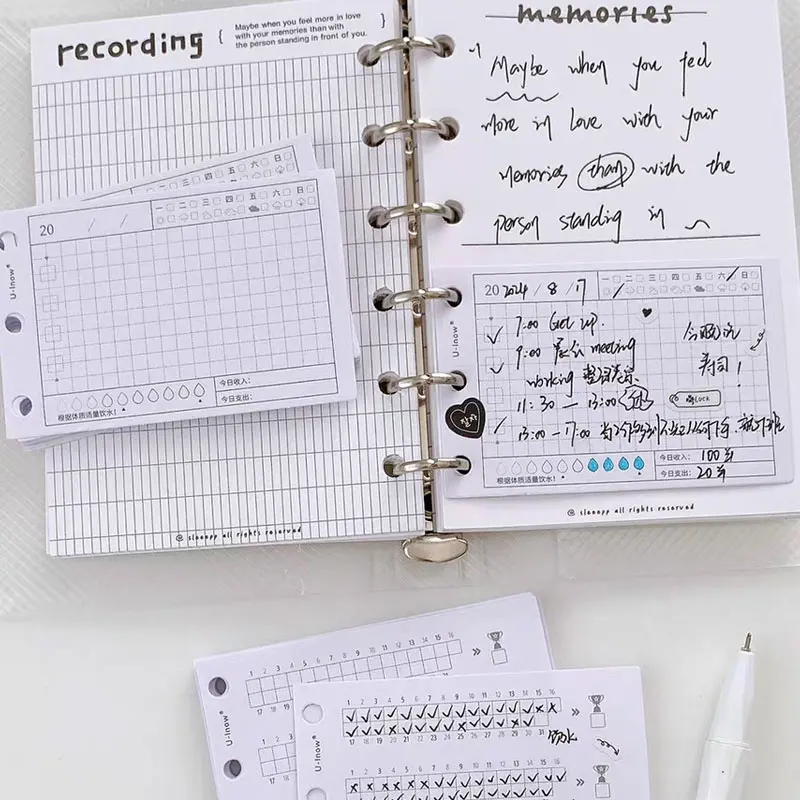 recording
{ Maybe when you feel more in love
with your memories than with
the person standing in front of you. }
一 二 三 四 五 六 日
20 / /
一 二 三 四 五 六 日
U-Inow®
今日收入:
今日支出:
根据体质适量饮水!
@ sleeepp all rights reserved
memories
Maybe when you feel
more in love with your
memories than with the
person standing in
20 2024 / 8 / 17
一 二 三 四 五 六 日
U-Inow®
7:00 Get up.
9:00 meeting
working
11:30 — 13:00
13:00 – 17:00
寿司!
Lock
잘자
今日收入: 100
今日支出: 20
根据体质适量饮水!
@ sleeepp all rights reserved
1 2 3 4 5 6 7 8 9 10 11 12 13 14 15 16
17 18 19
U-Inow®
1 2 3 4 5 6 7 8 9 10 11 12 13 14 15 16
17 18 19 20 21 22 23 24 25 26 27 28 29 30 31
U-Inow®
1 2 3 4 5 6 7 8 9 10 11 12 13 14 15 16